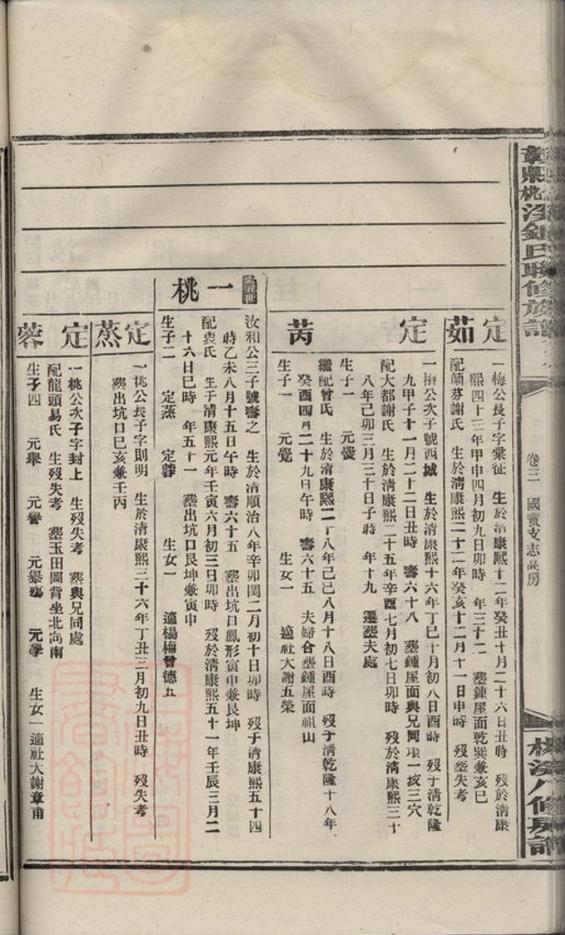 聯修族譜
卷三 國寶支志高房
八修房譜
定茹
一梅公長子字彙征 生於清康熙十二年癸丑十月二十六日丑時 歿於清康
熙四十三年甲申四月初九日卯時 年三十二 塟鍾屋面乾巽兼亥巳
配 芬謝氏 生於清康熙二十二年癸亥十二月十一日申時 歿塟失考
定芮
一梅公次子號西城 生於清康熙十六年丁巳十月初八日酉時 歿于清乾隆
九甲子十一月二十二日丑時 壽六十八 塟鍾屋面與兄同 一亥三穴
配大都謝氏 生於清康熙二十五年辛酉七月初七日卯時 歿於清康熙三十
八年己卯三月三十日子時 年十九 遷塟夫處
生子一 元
繼配曾氏 生於清康熙二十八年己己八月十八日酉時 歿于清乾隆十八年
癸酉四月二十九日午時 壽六十五 夫婦合塟鍾屋面祖山
生子一 元覺 生女一 適社大謝五榮
一桃
汝和公三子號 之 生於清順治八年辛卯閏二月初十日卯時 歿于清康熙五十四
時乙未八月十五日午時 壽六十五 塟出坑口鳳形寅申兼艮坤
配袁氏 生于清康熙元年壬寅六月初三日卯時 歿於清康熙五十一年壬辰三月二
十六日巳時 年五十一 塟出坑口艮坤兼寅申
生子二 定蒸 定蓉 生女一 適楊梅曾德五
定蒸
一桃公長子字則明 生於清康熙三十六年丁丑三月初九日丑時 歿失考
塟出坑口巳亥兼壬丙
定蓉
一桃公次子字封上 生歿失考 塟與兄同處
配龍頭易氏 生歿失考 塟玉田岡背坐北向南
生子四 元舉 元譽 元 元學 生女一適社大謝章甫